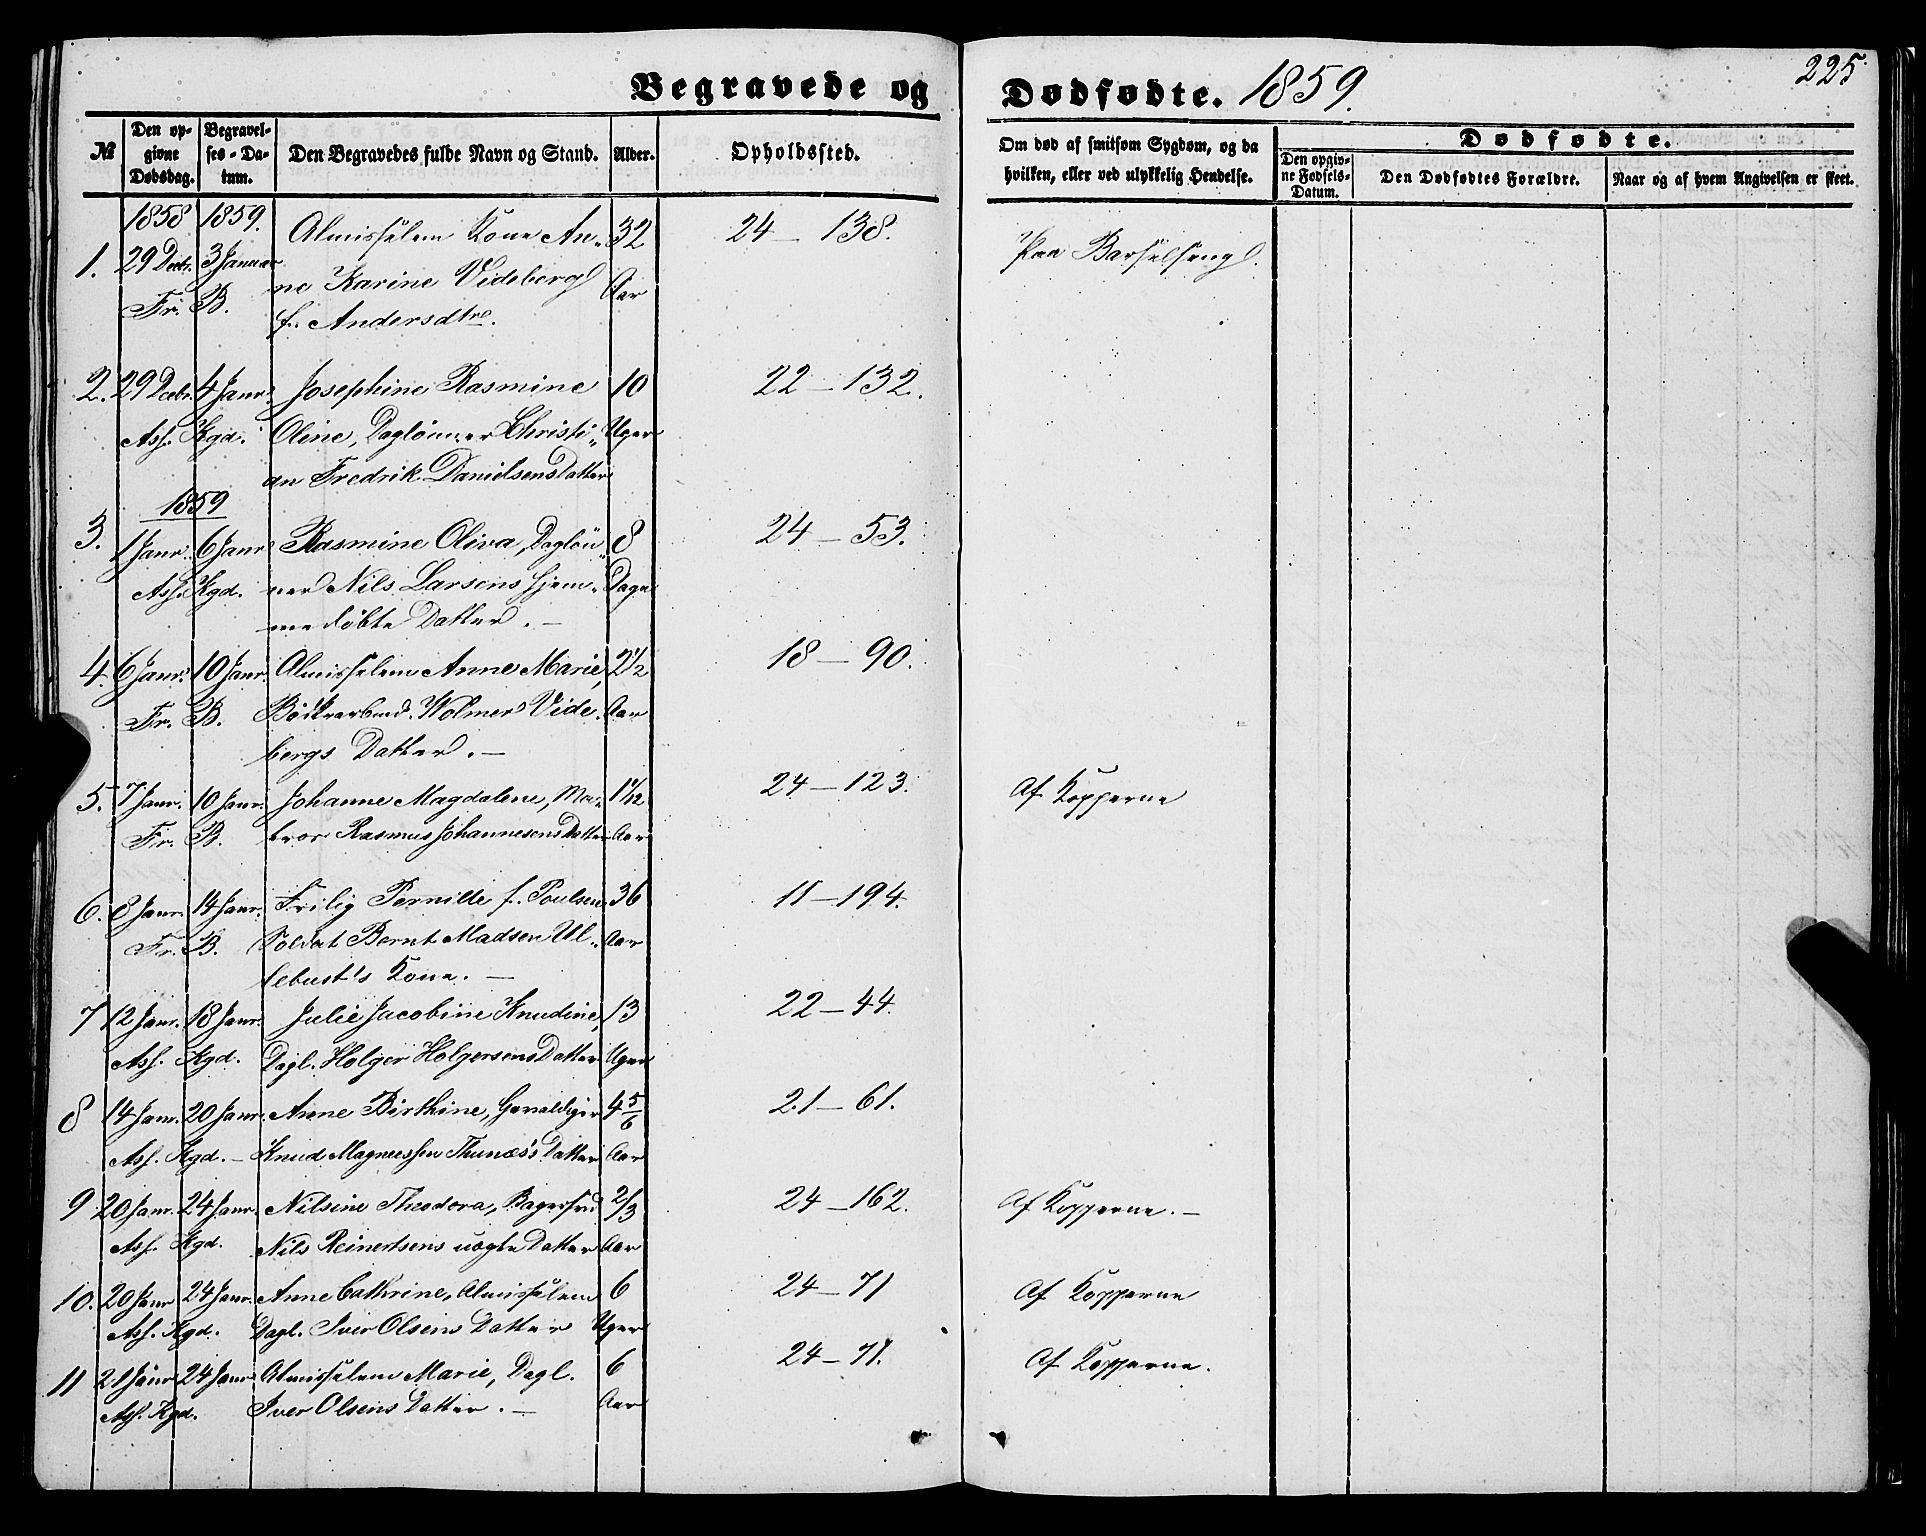 Begravede og Dødfødte. 1859.
225.
№
Den op-
givne
Dødsdag.
Begravel-
ses-Da-
tum.
Den Begravedes fulde Navn og Stand.
Alder.
Opholdssted.
Om død af smitsom Sygdom, og da
hvilken, eller ved ulykkelig Hendelse.
Dødfødte.
Den opgiv-
ne Fødsels-
Datum.
Den Dødfødtes Forældre.
Naar og af hvem Angivelsen er skeet.
1858 1859.
1. 29 Decbr. 3 Januar Almisselem Kone An- 32 24 - 138. Paa Barselseng.
Fr. B. ne Karine Videberg Aar
f. Andersdtr.
2. 29 Decbr. 4 Janr. Josephine Rasmine 10 22 - 132.
Ass. Kgd. Oline, Daglønner Christi- Uger
an Fredrik Danielsens Datter
1859
3. 1 Janr. 6 Janr. Rasmine Oliva, Dagløn- 8 24 - 53.
Ass. Kgd. ner Nils Larsens hjem- Dage
medøbte Datter. -
4. 6 Janr. 10 Janr. Almisselem Anne Marie, 2½ 18 - 90.
Fr. B. Bødkerarbeid. Wolmer Vide- Aar
bergs Datter. -
5. 7 Janr. 10 Janr. Johanne Magdalene, Ma- 1 1/12 24 - 123. Af Kopperne
Fr. B. tros Rasmus Johannesens Datter Aar
6. 8 Janr. 14 Janr. Frilig Pernille f. Poulsen 36 11 - 194.
Fr. B. Soldat Bernt Madsen Ul- Aar
lebust's Kone. -
7 12 Janr. 18 Janr. Julie Jacobine Knudine, 13 22 - 44.
Ass. Kgd. Dagl. Holger Holgersens Datter Uger
8 14 Janr. 20 Janr. Anne Birthine, Gevaldiger 4 5/6 21 - 61.
Ass. Kgd. - Knud Magnussen Thunæs's Datter Aar
9 20 Janr. 24 Janr. Nilsine Theodora, Bagersvd 2/3 24 - 162. Af Kopperne. -
Ass. Kgd. Nils Reinertsens uægte Datter Aar
10. 20 Janr 24 Janr. Anne Cathrine, Almisselem 6 24 - 71 Af Kopperne
Ass. Kgd. Dagl. Iver Olsens Datter Uger
11 21 Janr 24 Janr Almisselem Marie, Dagl. 6 24 - 71. Af Kopperne.
Ass. Kgd. Iver Olsens Datter. - Aar